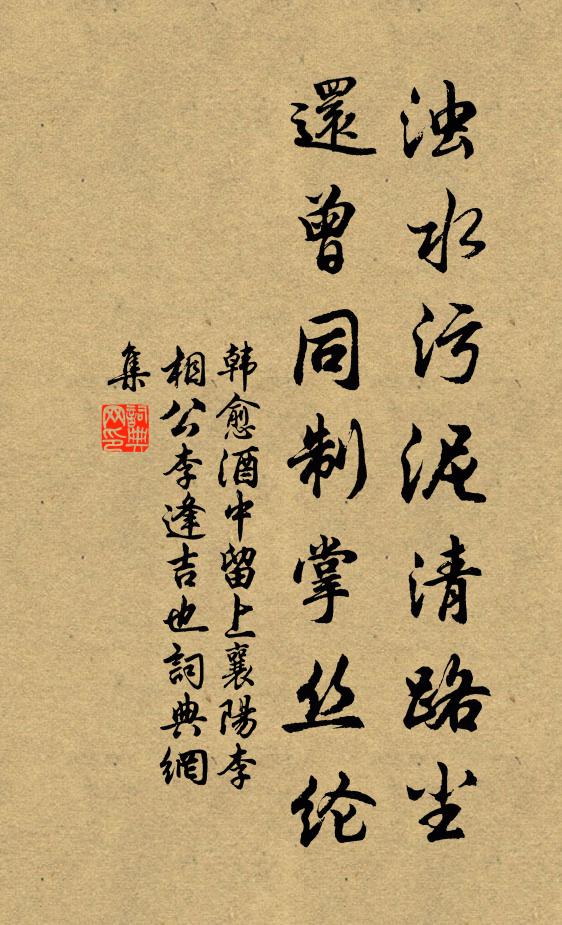 浊水污泥清路尘
還曾同制掌丝纶
韩愈酒中留上襄陽李
相公李逢吉也詞典網
集
詞典
网印